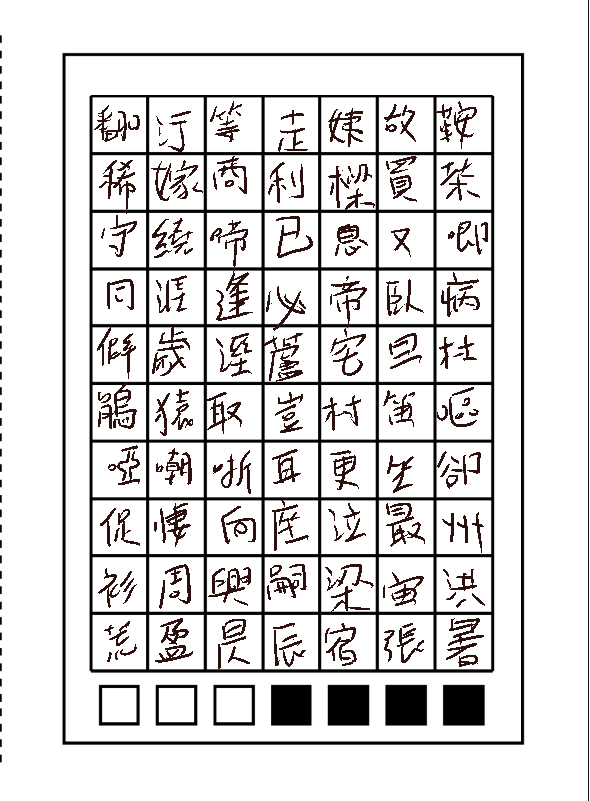 翻汀等走姨故鞍
稀嫁商利樑買茶
守繞啼已息又唧
同涯逢必帝臥病
僻歲溼蘆宅旦杜
鵑猿取豈村笛嘔
啞嘲哳耳更坐卻
促悽向座泣最州
衫周興嗣梁宙洪
荒盈昃辰宿張暑